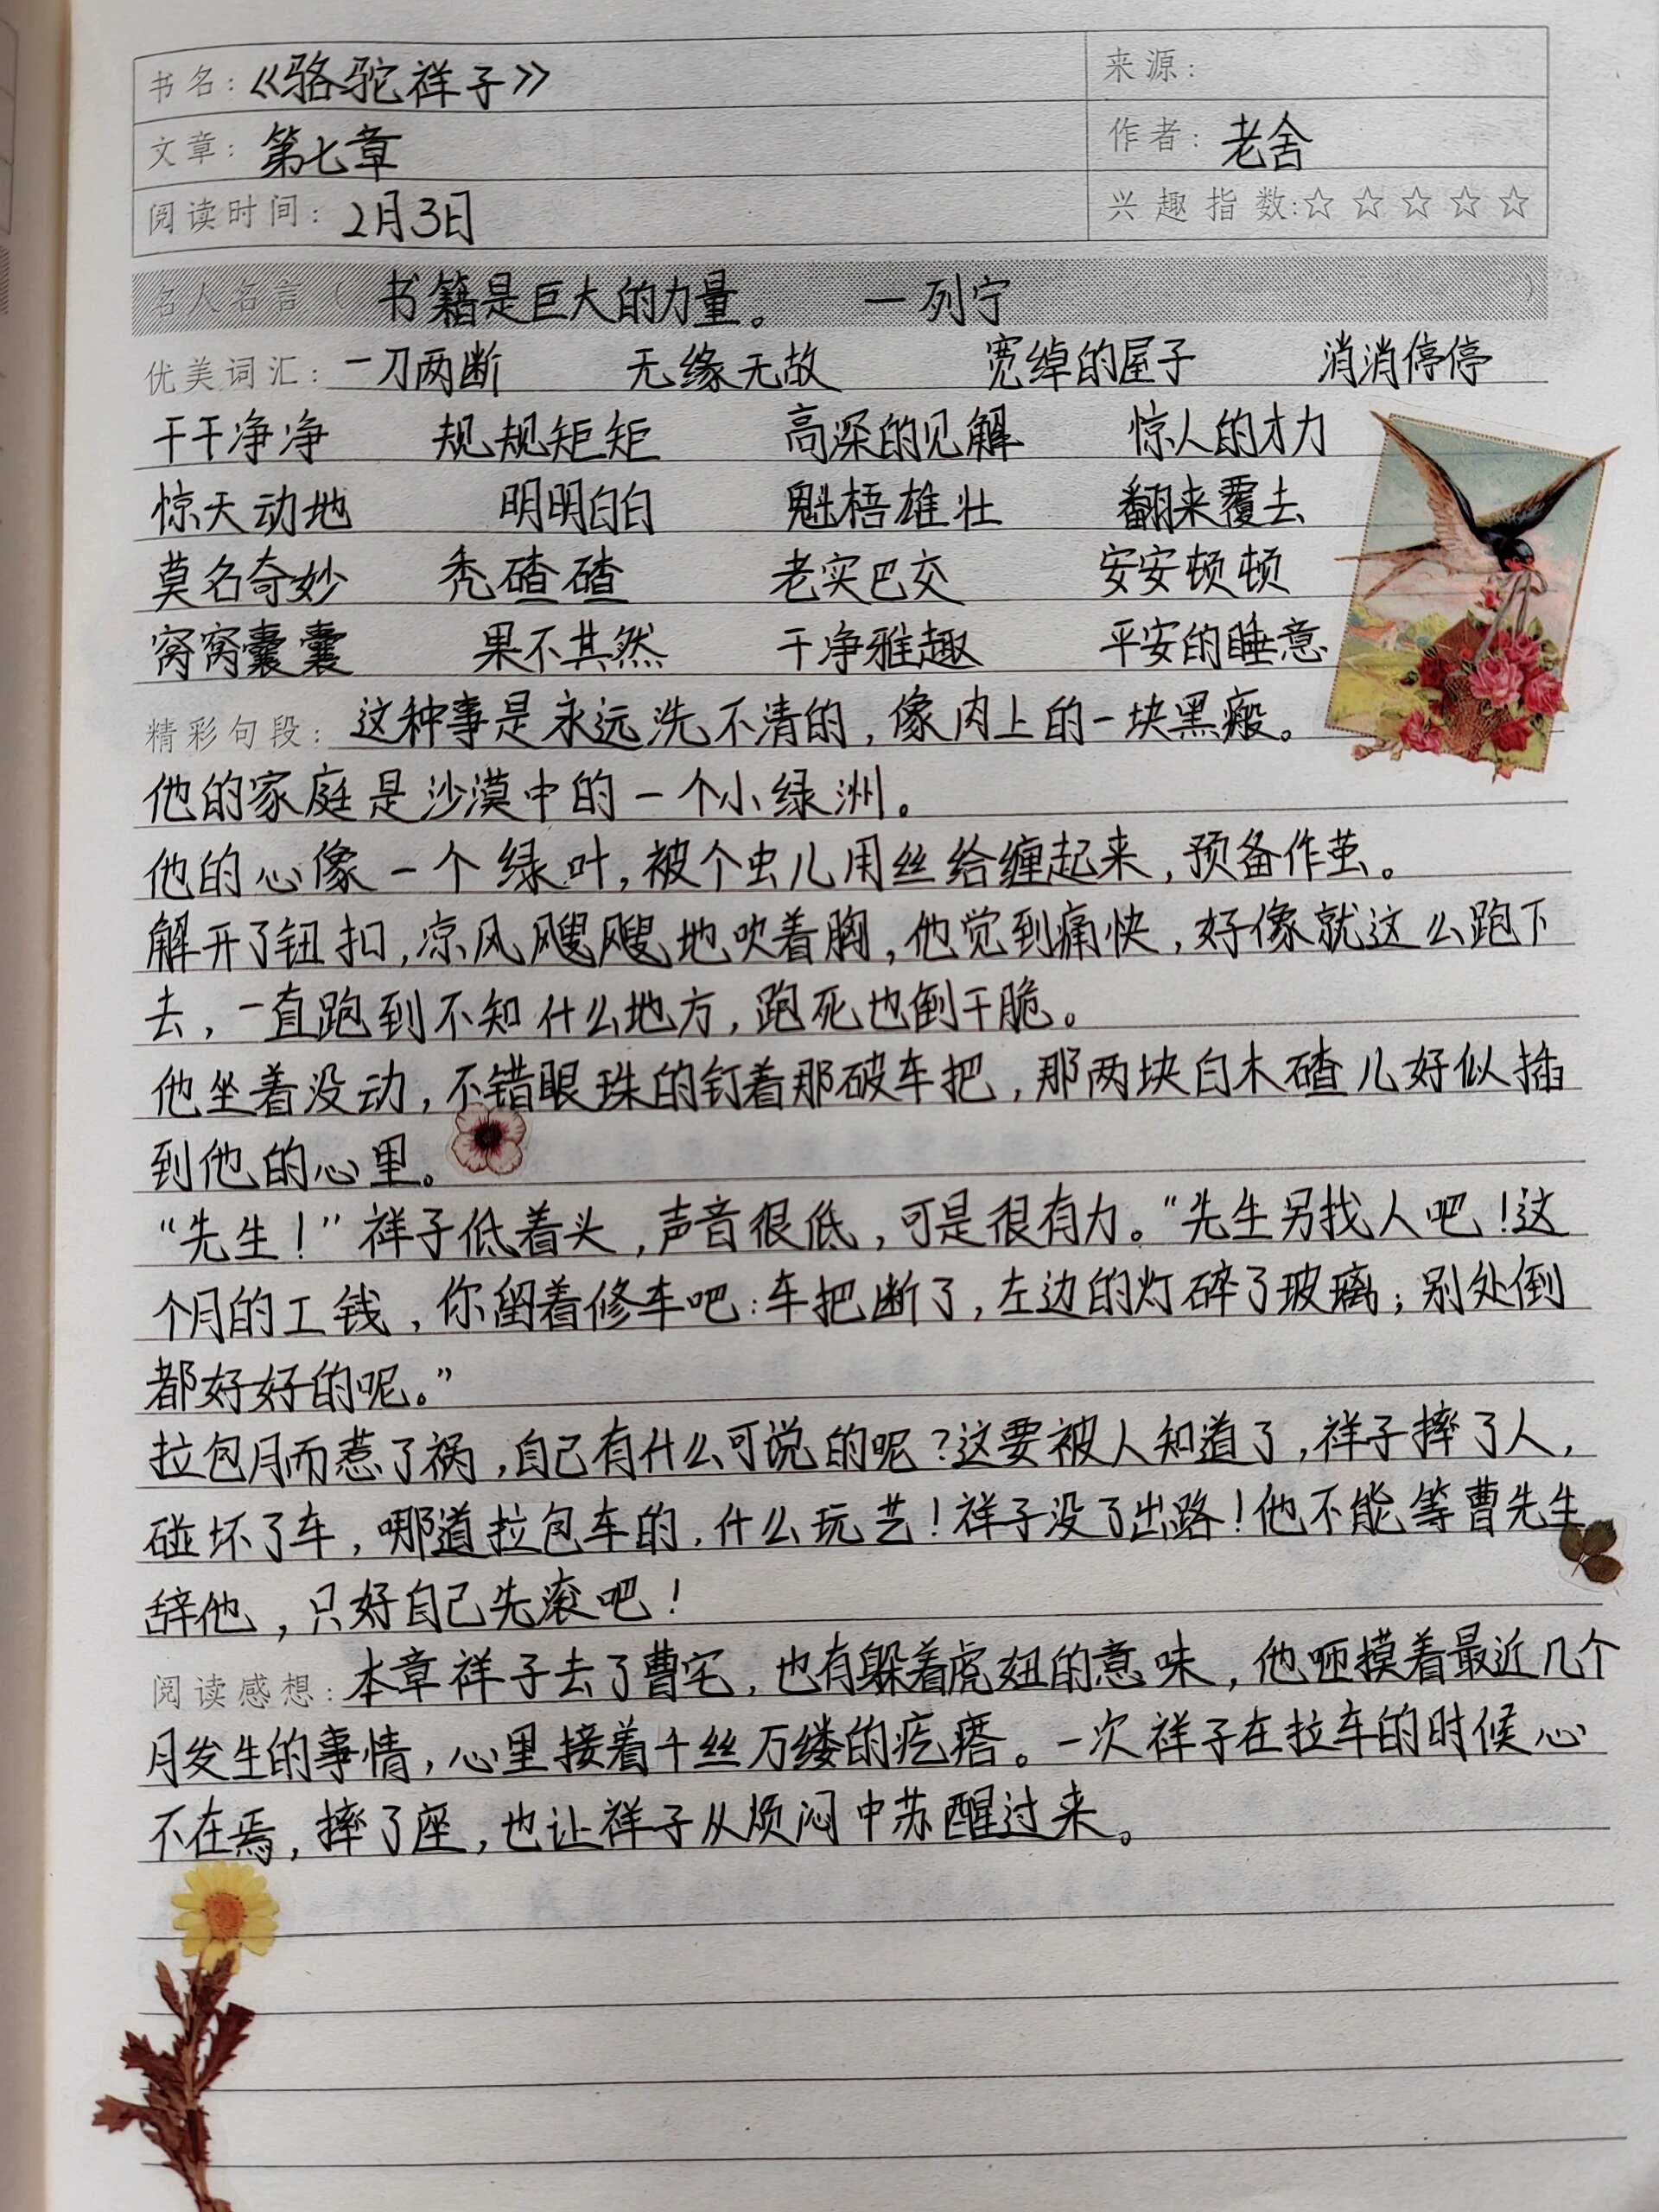 书名：《骆驼祥子》 来源：
文章：第七章 作者：老舍
阅读时间：2月3日 兴趣指数：☆☆☆☆☆
名人名言（ 书籍是巨大的力量。 — 列宁 ）
优美词汇：一刀两断 无缘无故 宽绰的屋子 消消停停
干干净净 规规矩矩 高深的见解 惊人的才力
惊天动地 明明白白 魁梧雄壮 翻来覆去
莫名奇妙 秃碴碴 老实巴交 安安顿顿
窝窝囊囊 果不其然 干净雅趣 平安的睡意
精彩句段：这种事是永远洗不清的，像肉上的一块黑瘢。
他的家庭是沙漠中的一个小绿洲。
他的心像一个绿叶，被个虫儿用丝给缠起来，预备作茧。
解开了钮扣，凉风飕飕地吹着胸，他觉到痛快，好像就这么跑下
去，一直跑到不知什么地方，跑死也倒干脆。
他坐着没动，不错眼珠的钉着那破车把，那两块白木碴儿好似插
到他的心里。
“先生！”祥子低着头，声音很低，可是很有力。“先生另找人吧！这
个月的工钱，你留着修车吧：车把断了，左边的灯碎了玻璃；别处倒
都好好的呢。”
拉包月而惹了祸，自己有什么可说的呢？这要被人知道了，祥子摔了人，
碰坏了车，哪道拉包车的，什么玩艺！祥子没了出路！他不能等曹先生
辞他，只好自己先滚吧！
阅读感想：本章祥子去了曹宅，也有躲着虎妞的意味，他咂摸着最近几个
月发生的事情，心里接着千丝万缕的疙瘩。一次祥子在拉车的时候心
不在焉，摔了座，也让祥子从烦闷中苏醒过来。